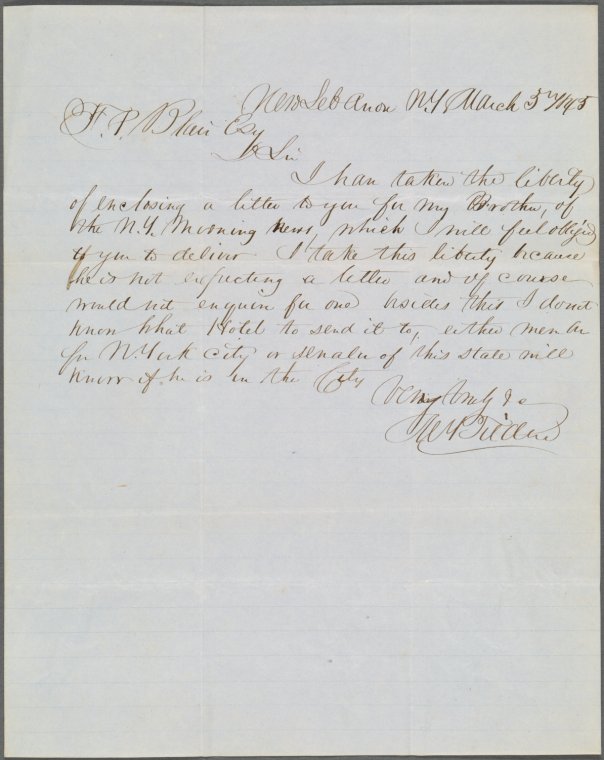 New Lebanon N.Y. March 5th/45
F. P. Blair Esq
D Sir
I have taken the liberty
of enclosing a letter to you for my Brother, of
the N.Y. Morning News, which I will feel oblig'd
to you to deliver I take this liberty because
he is not expecting a letter and of course
would not enquire for one besides this I don't
know what Hotel to send it to, either member
for N. York city or senator of this state will
know if he is in the City
Very truly &c
Tilden